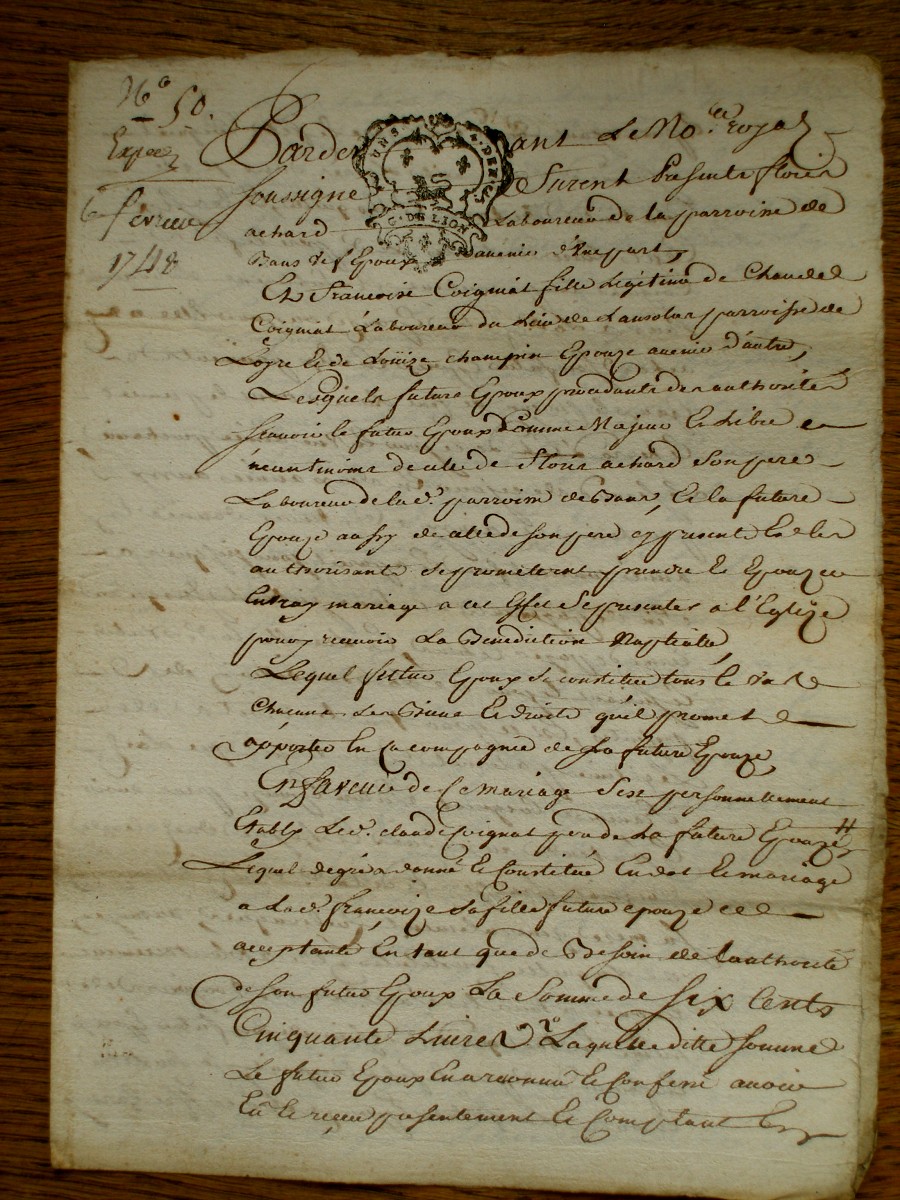 No 50.
Exped
6 fevrier
1748
UN S. 4. DEN.
G. DE LION
Pardevant Le No.re royal
soussigné Furent Presents floris
achard Laboureur de la parroisse de
Bans Epoux avenir d'une part,
Et Francoise Coignat fille Legitime de Claude
Coignat Laboureur du Lieu de parroisse de
Loyre et de Loüize champin Epouze avenir d'autre,
Lesquels futurs Epoux procedants des authorités
scavoir le futur Epoux comme Majeur et Libre et
neantmoins de celle de Floris achard son pere
Laboureur de lad. parroisse de Bans, et la future
Epouze aussy de celle de son pere cy present et les
authorisants se promettent prendre et Epouzer
En vray mariage a cet Effet se presenter a l'Eglize
pour y recevoir La Benediction Nuptialle,
Lequel futur Epoux se constitue tous et un
chacuns ses Biens et droits qu'il promet
apporter En la compagnie de sa future Epouze,
En faveur de Ce mariage s'est personnellement
Etably Led. claude Coignat pere de La future Epouze
Lequel de gré a donné et Constitué En dot et mariage
a Lad. francoize sa fille future epouze
acceptante En tant que de Besoin de l'authorité
de son futur Epoux La Somme de six Cents
Cinquante Livres Laquelle ditte somme
Le futur Epoux En a reconnu et Confessé avoir
Eü et reçeu presentement et Comptant